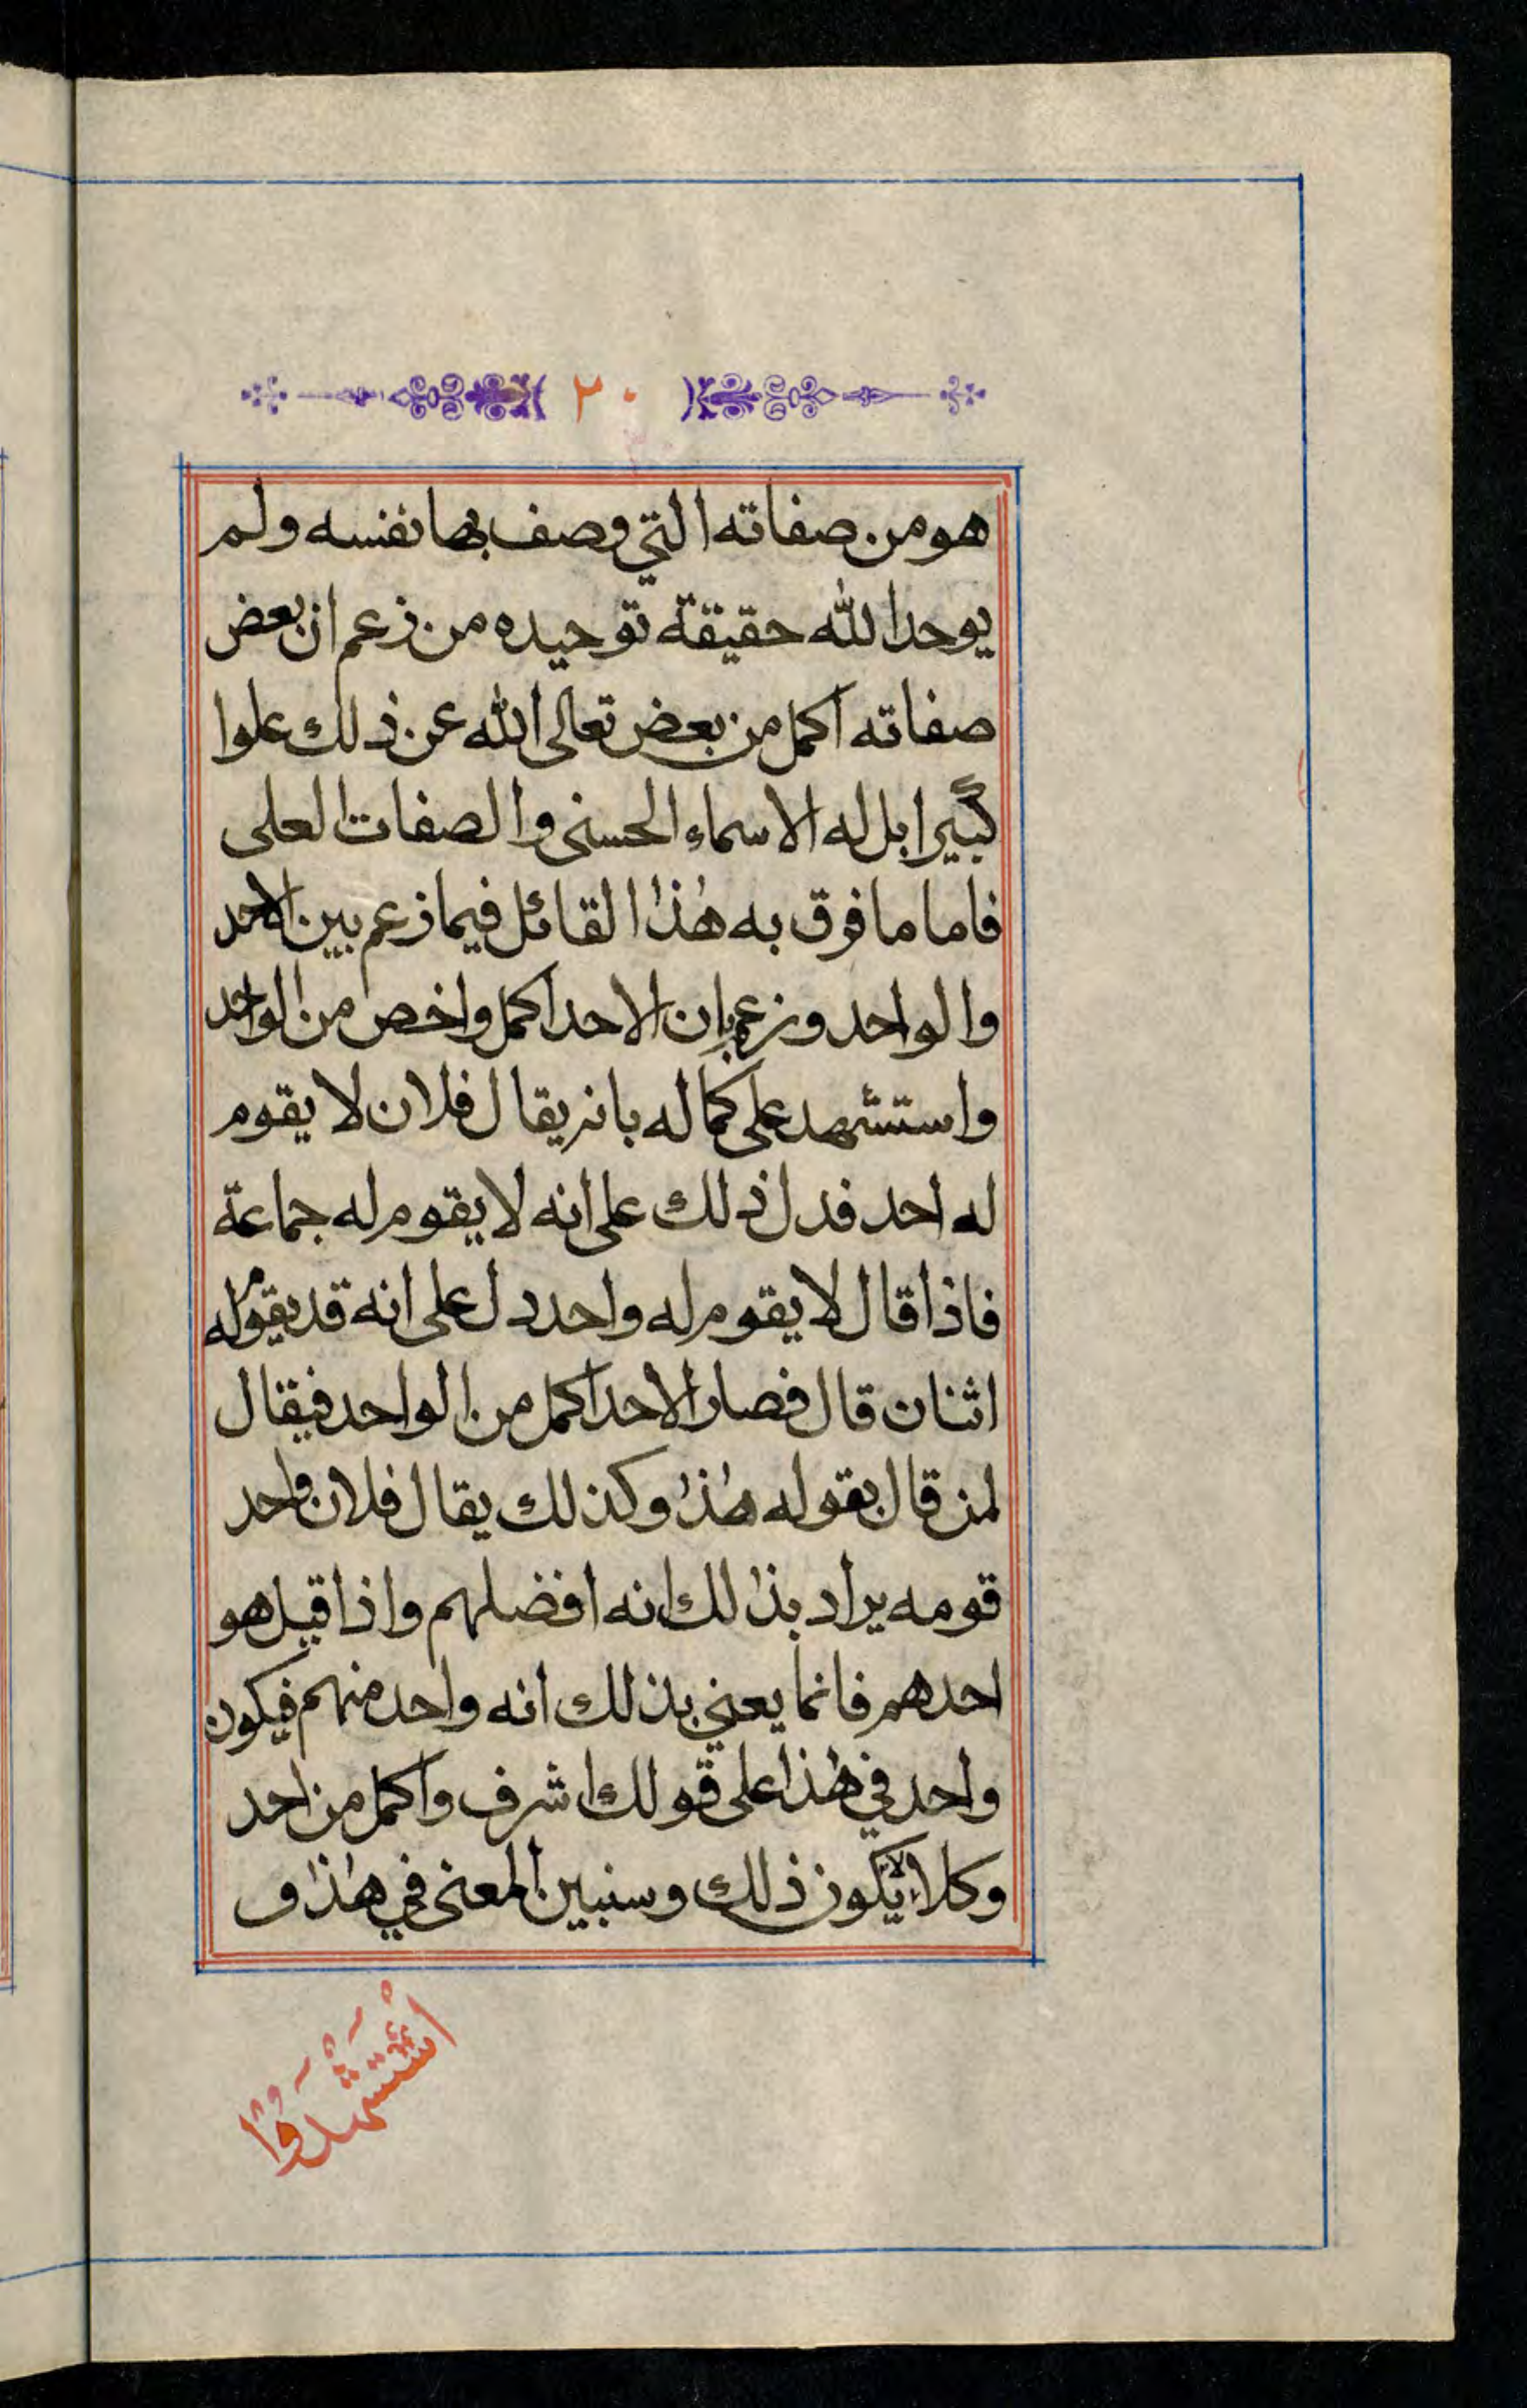 ٢٠
هو من صفاته التي وصف بها نفسه ولم
يوحد الله حقيقة توحيده من زعم ان بعض
صفاته اكمل من بعض تعالى الله عن ذلك علوا
كبيرا بل له الاسماء الحسنى والصفات العلى
فاما ما فوق به هذا القائل فيما زعم بين الاحد
والواحد وزعم بان الاحد اكمل واخص من الواحد
واستشهد على كماله بانه يقال فلان لا يقوم
له احد فدل ذلك على انه لا يقوم له جماعة
فاذا قال لا يقوم له واحد دل على انه قد يقوم له
اثنان قال فصار الاحد اكمل من الواحد فيقال
لمن قال بقوله هذا وكذلك يقال فلان واحد
قومه يراد بذالك انه افضلهم واذا قيل هو
احدهم فانما يعني بذلك انه واحد منهم فيكون
واحد في هذا على قولك اشرف واكمل من احد
وكلا لا يكون ذلك وسنبين المعنى في هذا و